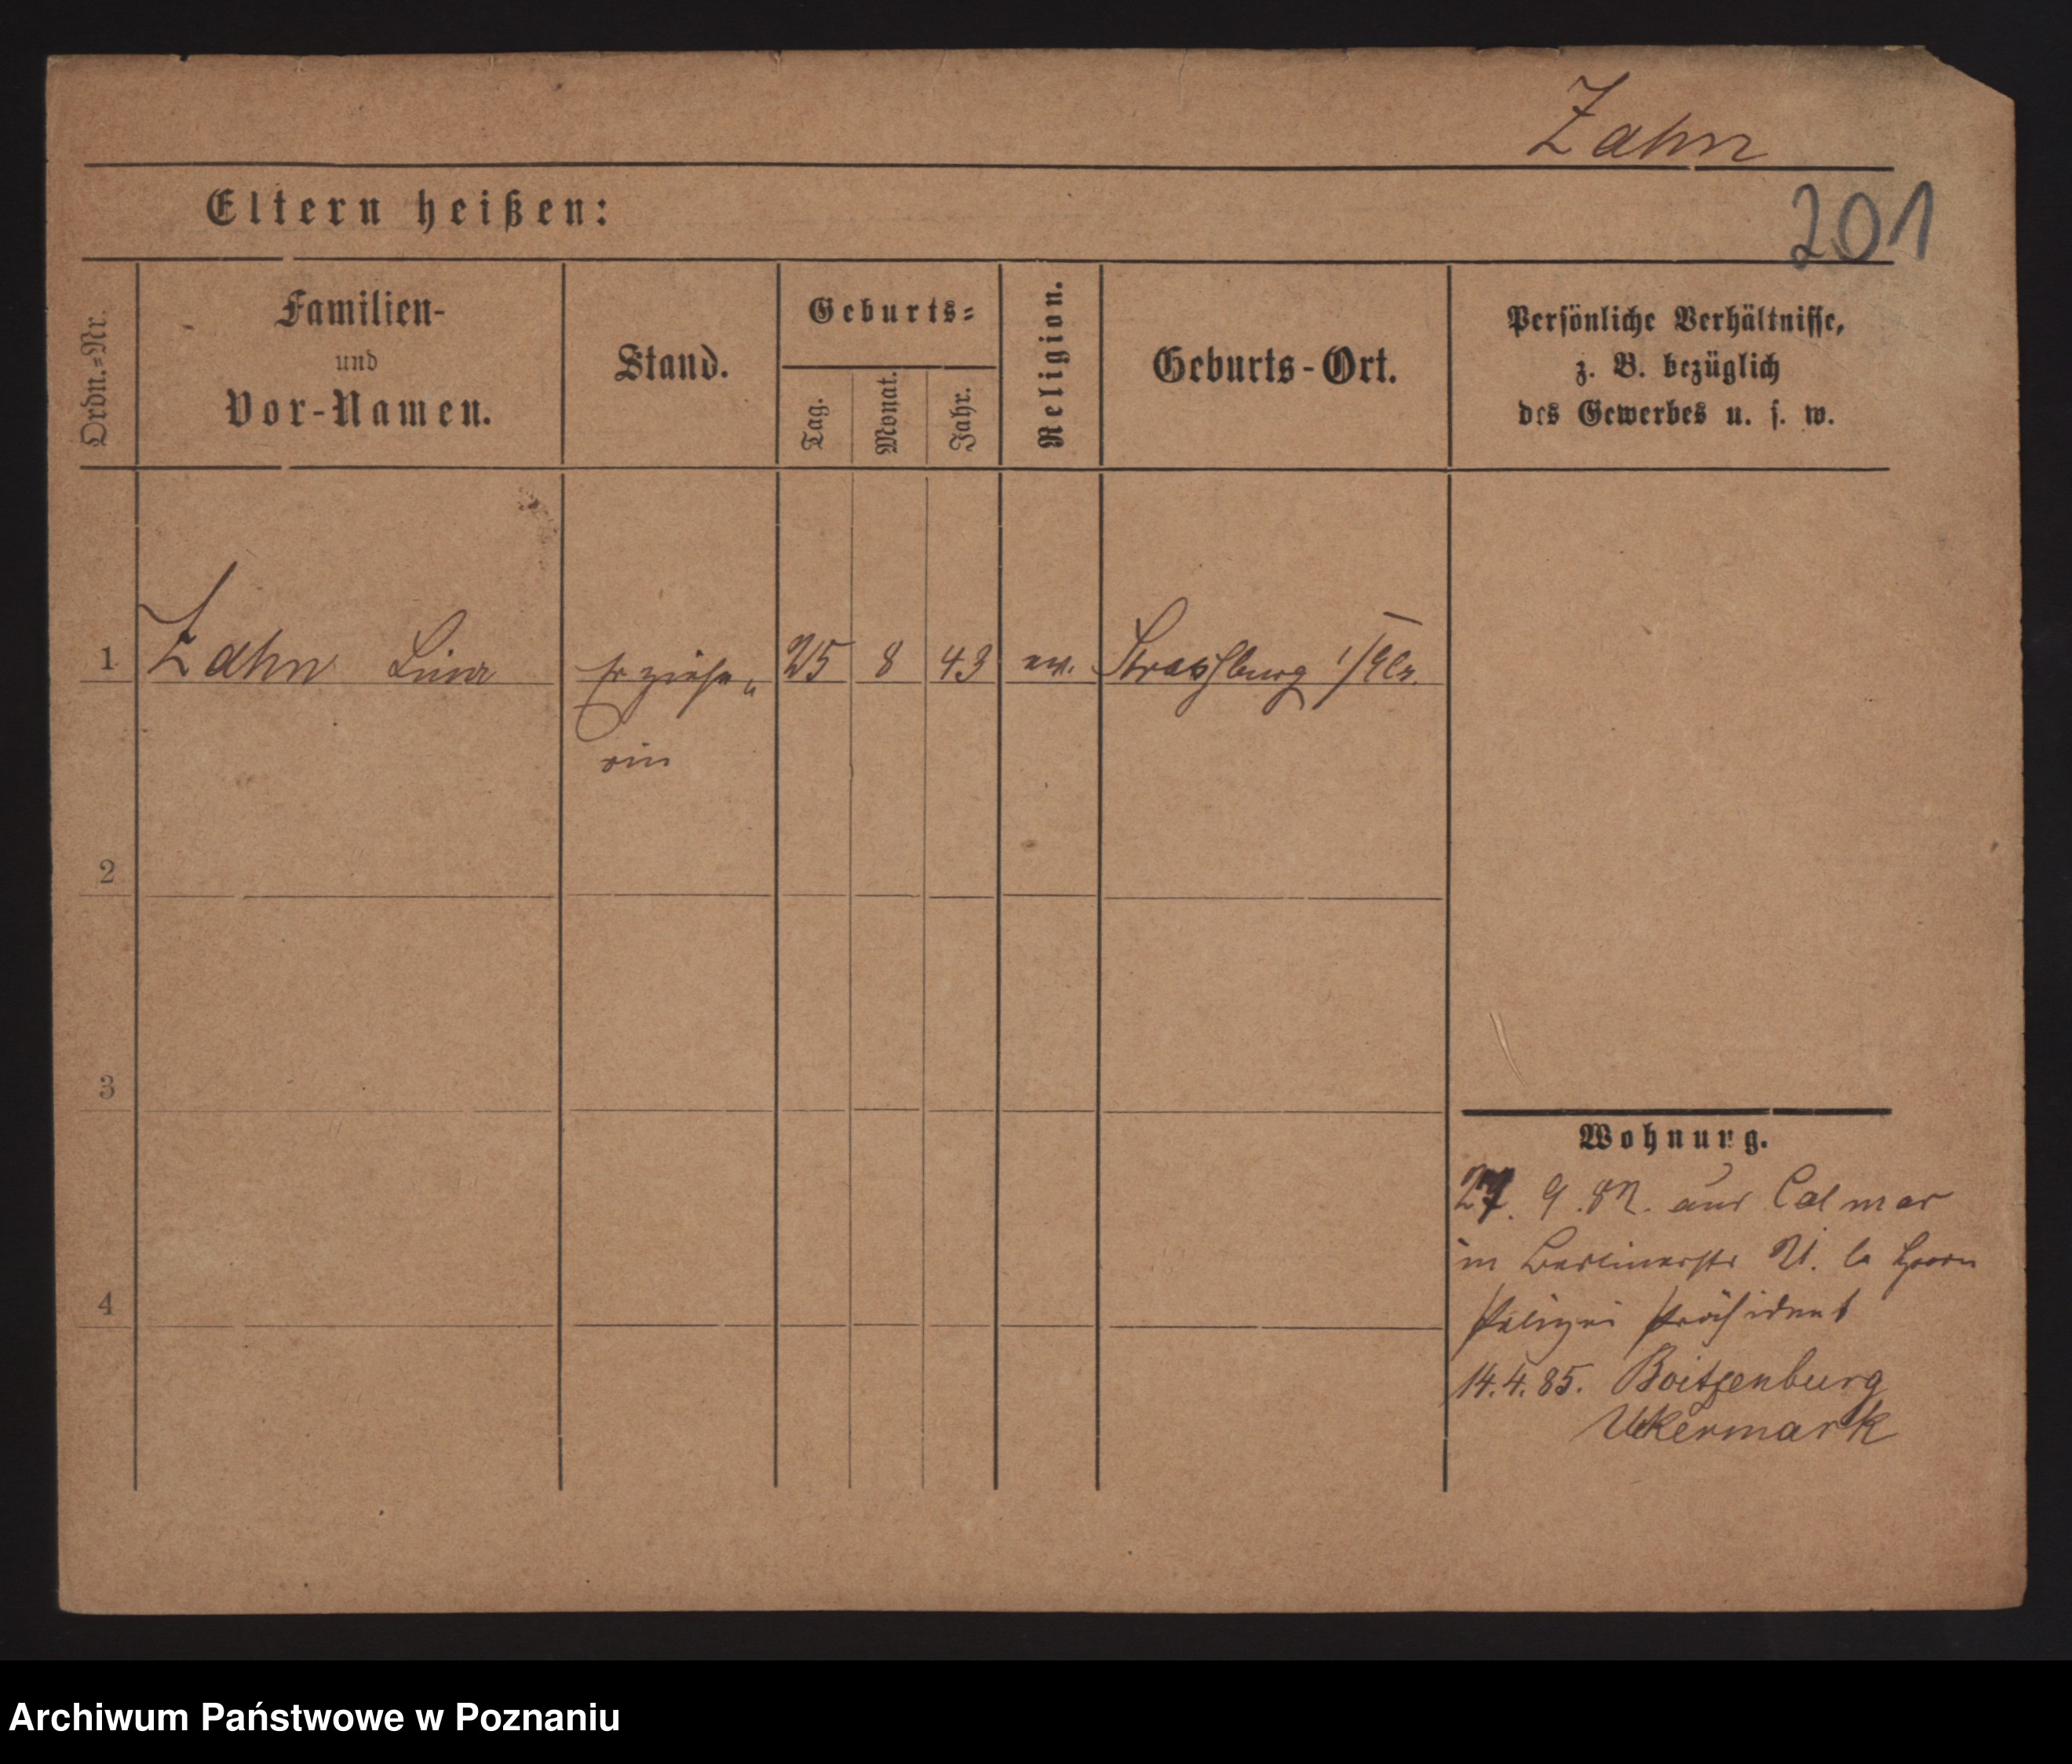 Zahn
201
Eltern heißen:
Ordn.-Nr.
Familien-
und
Vor-Namen.
Stand.
Geburts-
Tag.
Monat.
Jahr.
Religion.
Geburts-Ort.
Persönliche Verhältnisse,
z. B. bezüglich
des Gewerbes u. s. w.
1 Zahn Lina Erziehe„ 25 8 43 ev. Strassburg
rin
2
3
4
Wohnung.
27. 9. 82. aus Colmar
in Berlinerstr 21. b Herrn
Polizei Präsident
14.4.85. Boitzenburg
Ukermark
Archiwum Państwowe w Poznaniu